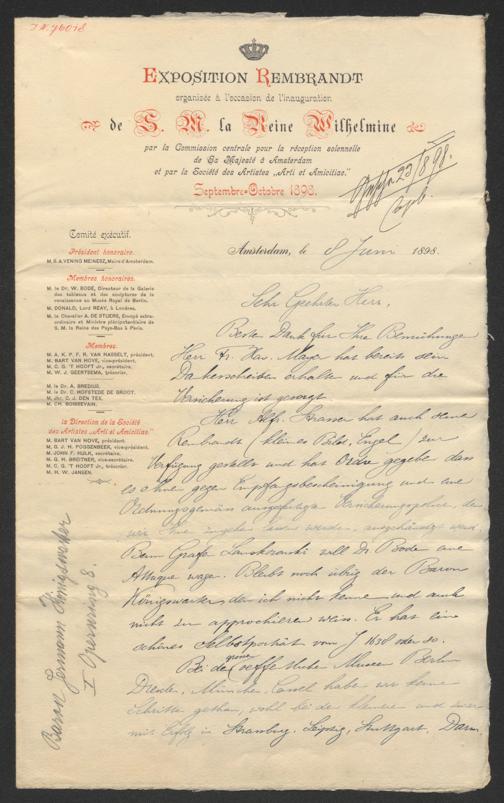 EXPOSITION REMBRANDT
organisée à l'occasion de l'inauguration
de S. M. la Reine Wilhelmine
par la Commission centrale pour la réception solennelle
de Sa Majesté à Amsterdam
et par la Société des Artistes „Arti et Amicitiae."
Septembre-Octobre 1898.
23/8 98.
Comité exécutif.
Président honoraire.
M. S. A. VENING MEINESZ, Maire d'Amsterdam.
Membres honoraires.
M. le Dr. W. BODE, Directeur de la Galerie
des tableaux et des sculptures de la
renaissance au Musée Royal de Berlin.
M. DONALD, Lord REAY, à Londres.
M. le Chevalier A. DE STUERS, Envoyé extra-
ordinaire et Ministre plénipotentiaire de
S. M. la Reine des Pays-Bas à Paris.
Membres.
M. A. K. P. F. R. VAN HASSELT, président.
M. BART VAN HOVE, vice-président.
M. C. G. 'T HOOFT Jr., secrétaire.
M. W. J. GEERTSEMA, trésorier.
M. le Dr. A. BREDIUS.
M. le Dr. C. HOFSTEDE DE GROOT.
M. Jhr. C. J. DEN TEX.
M. CH. BOISSEVAIN.
la Direction de la Société
des Artistes „Arti et Amicitiae."
M. BART VAN HOVE, président.
M. G. J. H. POGGENBEEK, vice-président.
M. JOHN F. HULK, secrétaire.
M. G. H. BREITNER, vice-secrétaire.
M. C. G. 'T HOOFT Jr., trésorier.
M. H. W. JANSEN.
Amsterdam, le 8 Juni 1898.
Sehr Geehrter Herr,
Besten Dank für Ihre Bemühungen
Herr Fr. Xav. Mayer hat bereits sein
Dankschreiben erhalten und für die
Versicherung ist gesorgt.
Herr Alfr. Strasser hat auch seine
Rembrandt (kleines Bild, Engel) zur
Verfügung gestellt und hat Ordre gegeben dass
es Ihnen gegen Empfangsbescheinigung und eine
Ordnungsgemäss ausgefertigte Versicherungspolice, die
wir Ihnen zugehen lassen werden, ausgehändigt werde.
Beim Grafen Lanckoronski will Dr Bode eine
Attaque wagen. Bleibt noch übrig der Baron
Königswarter, den ich nicht kenne und auch
nicht zu approchieren weiss. Er hat ein
schönes Selbstporträt vom J 1638 oder so.
Bei den grossen öffentlichen Museen Berlin
Dresden, München, Cassel haben wir keine
Schritte gethan, wohl bei den kleineren und zwar
mit Erfolg in Strassburg, Leipzig, Stuttgart, Darm
Baron Hermann Königswarter
I Opernring 8.